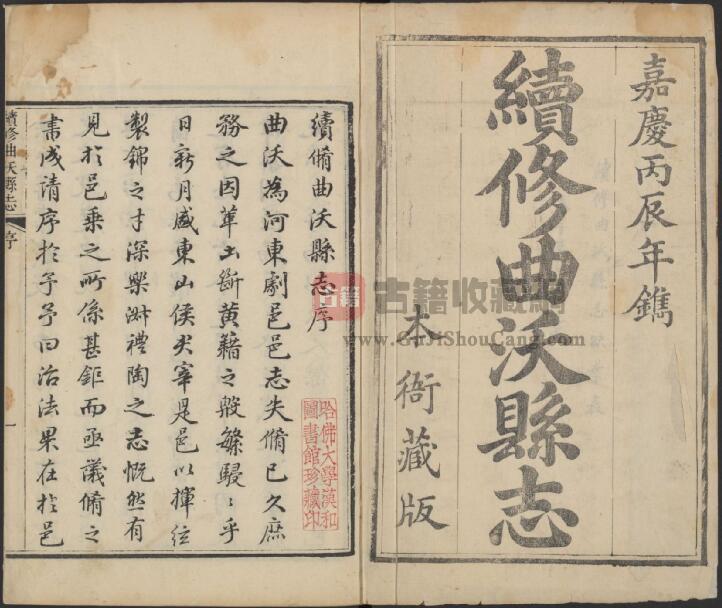 嘉慶丙辰年鐫
續修曲沃縣志
本衙藏版
古籍
古籍收藏網
www.GuJiShouCang.com
續脩曲沃縣志序
曲沃為河東劇邑邑志失脩已久庶
務之因革土斷黄籍之殷繁駸〻乎
日新月盛東山侯尖宰是邑以揮弦
製錦之才深樂淋禮陶之志慨然有
見於邑乗之所係甚鉅而亟議脩之
書成請序於予予曰治法果在於邑
哈佛大學漢和
圖書館珍藏印
續修曲沃縣志
序
一